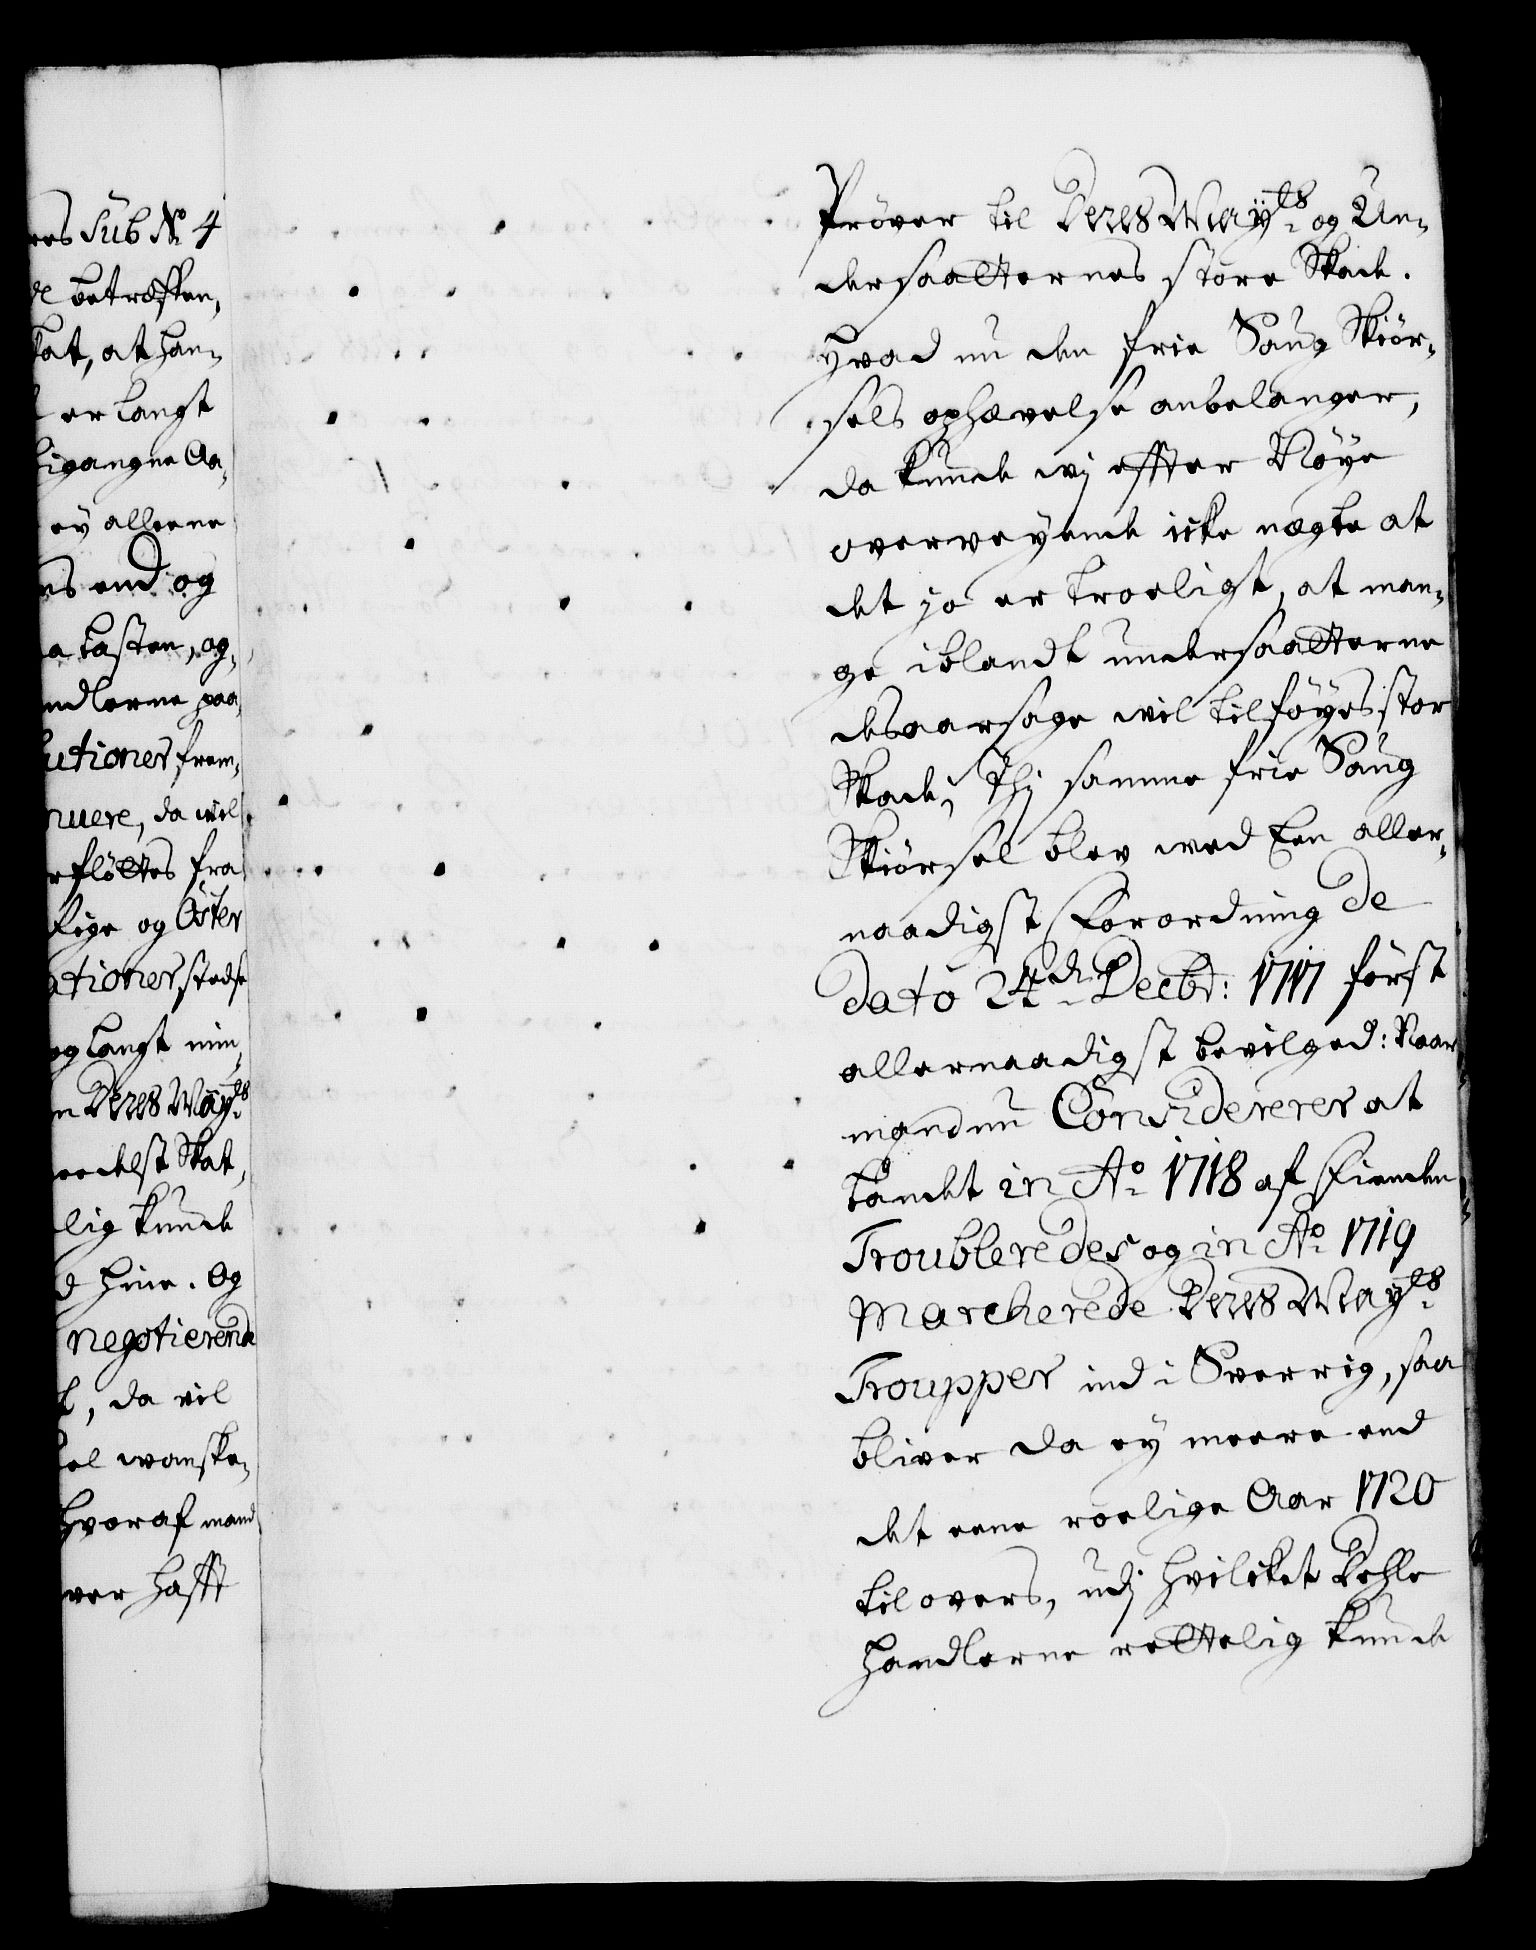 res Sub No 4
de betreffen,
kat, at han,
er langt
ligangne Aa,
ey alleene
ns end og
a kasten, og,
ndlerne paa
utioner frem,
nuere, da wil
rfløttes fra
lige og Öster
ationer stedse
og langt min,
n Deres Mayts
redelst Skat,
lig kunde
d hine. Og
negotierende
t, da vil
el wanske,
hvoraf mand
ver hafft
Prøver til Deres Mayts og Un,
dersaatternes store Skade.
Hvad nu den frie Saug Skiør,
sels ophævelse anbelanger,
da kunde wj effter Nøye
overveyende icke nægte at
det jo er troeligt, at man,
ge iblandt undersaatterne
desaarsage wil tilføyes stor
Skade; Thj samme frie Saug
Skiørsel blev wed Een aller,
naadigst Forordning De
Dato 24de Decbr: 1717 först
allernaadigst bevilged: Naar
mand nu Considererer at
Landet in Ao 1718 af Fienden
Troubleredes og in Ao 1719
Marcherede Deres Mayts
Troupper ind i Sverrig, saa
bliver da ey meere end
det eene roelige Aar 1720
til overs, udj hvilcket Dehle
handlerne rettelig kunde